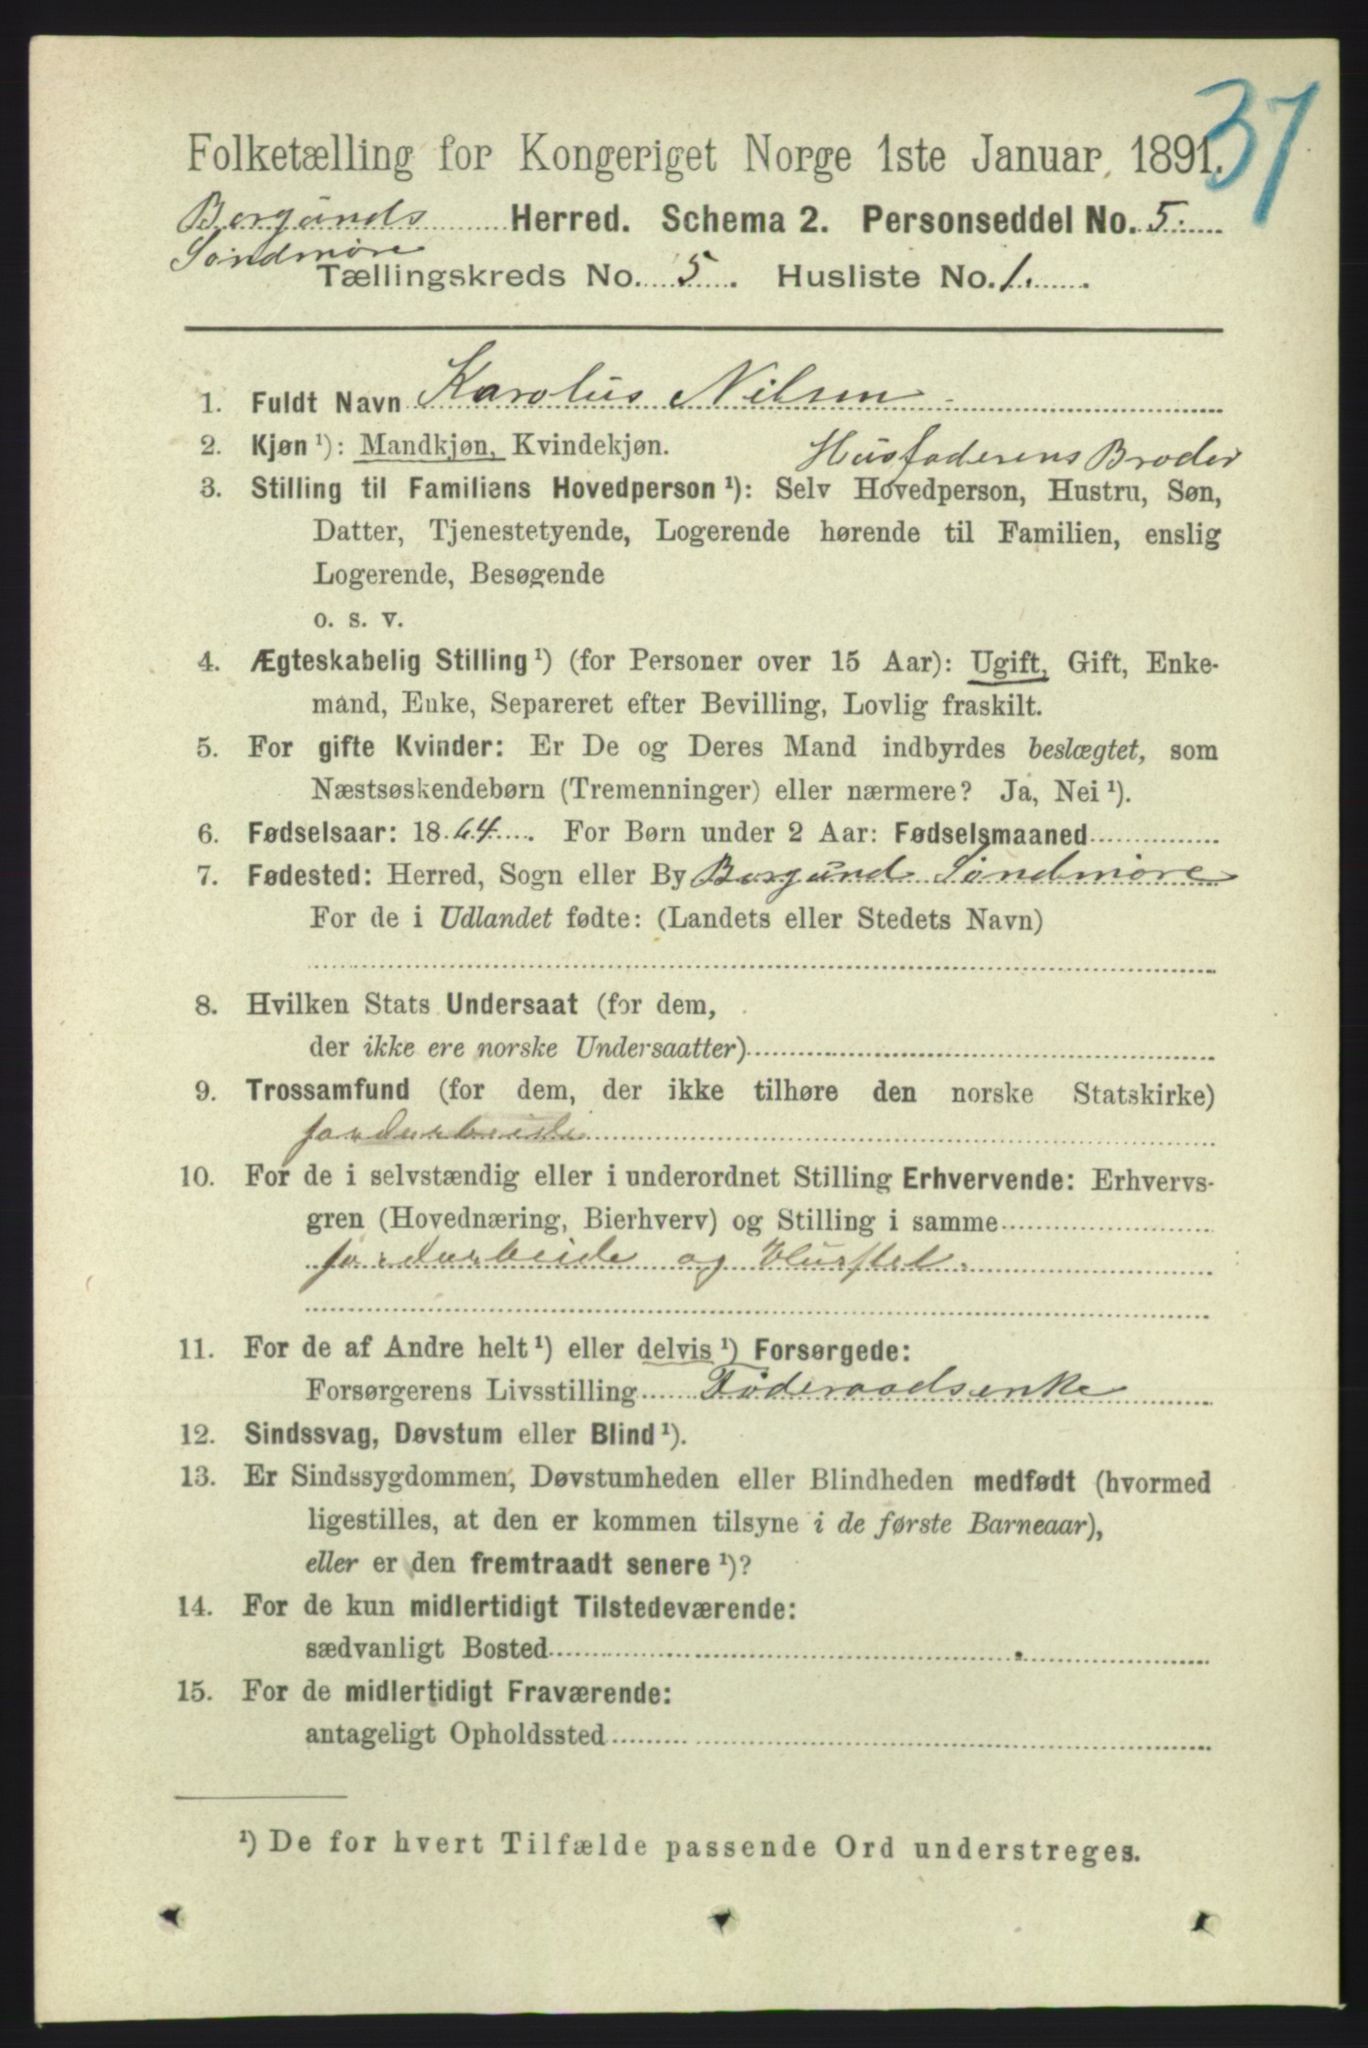 37
Folketælling for Kongeriget Norge 1ste Januar 1891.
Borgunds Herred. Schema 2. Personseddel No. 5.
Søndmøre
Tællingskreds No. 5. Husliste No. 1.
1. Fuldt Navn Karolus Nilsen
2. Kjøn ¹): Mandkjøn, Kvindekjøn.
Husfaderens Broder
3. Stilling til Familiens Hovedperson ¹): Selv Hovedperson, Hustru, Søn,
Datter, Tjenestetyende, Logerende hørende til Familien, enslig
Logerende, Besøgende
o. s. v.
4. Ægteskabelig Stilling ¹) (for Personer over 15 Aar): Ugift, Gift, Enke-
mand, Enke, Separeret efter Bevilling, Lovlig fraskilt.
5. For gifte Kvinder: Er De og Deres Mand indbyrdes beslægtet, som
Næstsøskendebørn (Tremenninger) eller nærmere? Ja, Nei ¹).
6. Fødselsaar: 1864. For Børn under 2 Aar: Fødselsmaaned
7. Fødested: Herred, Sogn eller By Borgund Søndmøre
For de i Udlandet fødte: (Landets eller Stedets Navn)
8. Hvilken Stats Undersaat (for dem,
der ikke ere norske Undersaatter)
9. Trossamfund (for dem, der ikke tilhøre den norske Statskirke)
jordarbeide
10. For de i selvstændig eller i underordnet Stilling Erhvervende: Erhvervs-
gren (Hovednæring, Bierhverv) og Stilling i samme
jordarbeide og
11. For de af Andre helt ¹) eller delvis ¹) Forsørgede:
Forsørgerens Livsstilling Føderaadsenke
12. Sindssvag, Døvstum eller Blind ¹).
13. Er Sindssygdommen, Døvstumheden eller Blindheden medfødt (hvormed
ligestilles, at den er kommen tilsyne i de første Barneaar),
eller er den fremtraadt senere ¹)?
14. For de kun midlertidigt Tilstedeværende:
sædvanligt Bosted
15. For de midlertidigt Fraværende:
antageligt Opholdssted
¹) De for hvert Tilfælde passende Ord understreges.